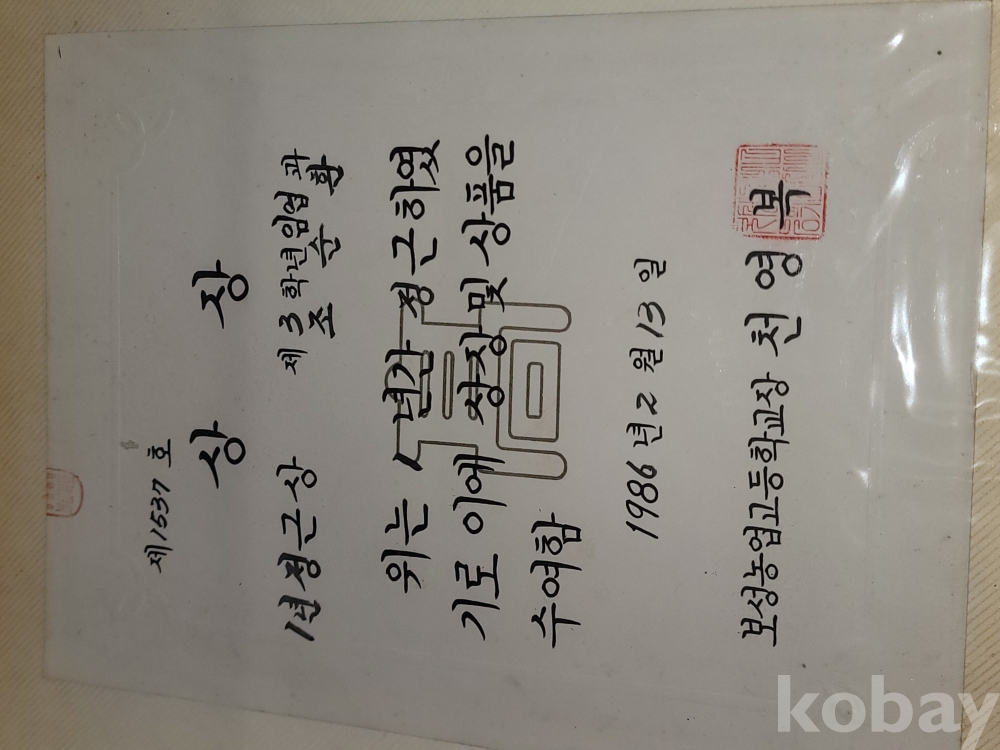 제1537호
상 장
1년 정근상
제3학년 임업과
조순환
위는 1년간 정근하였
기로 이에 상장 및 상품을
수여함
1986년 2월 13일
보성농업고등학교장 천영복
kobay